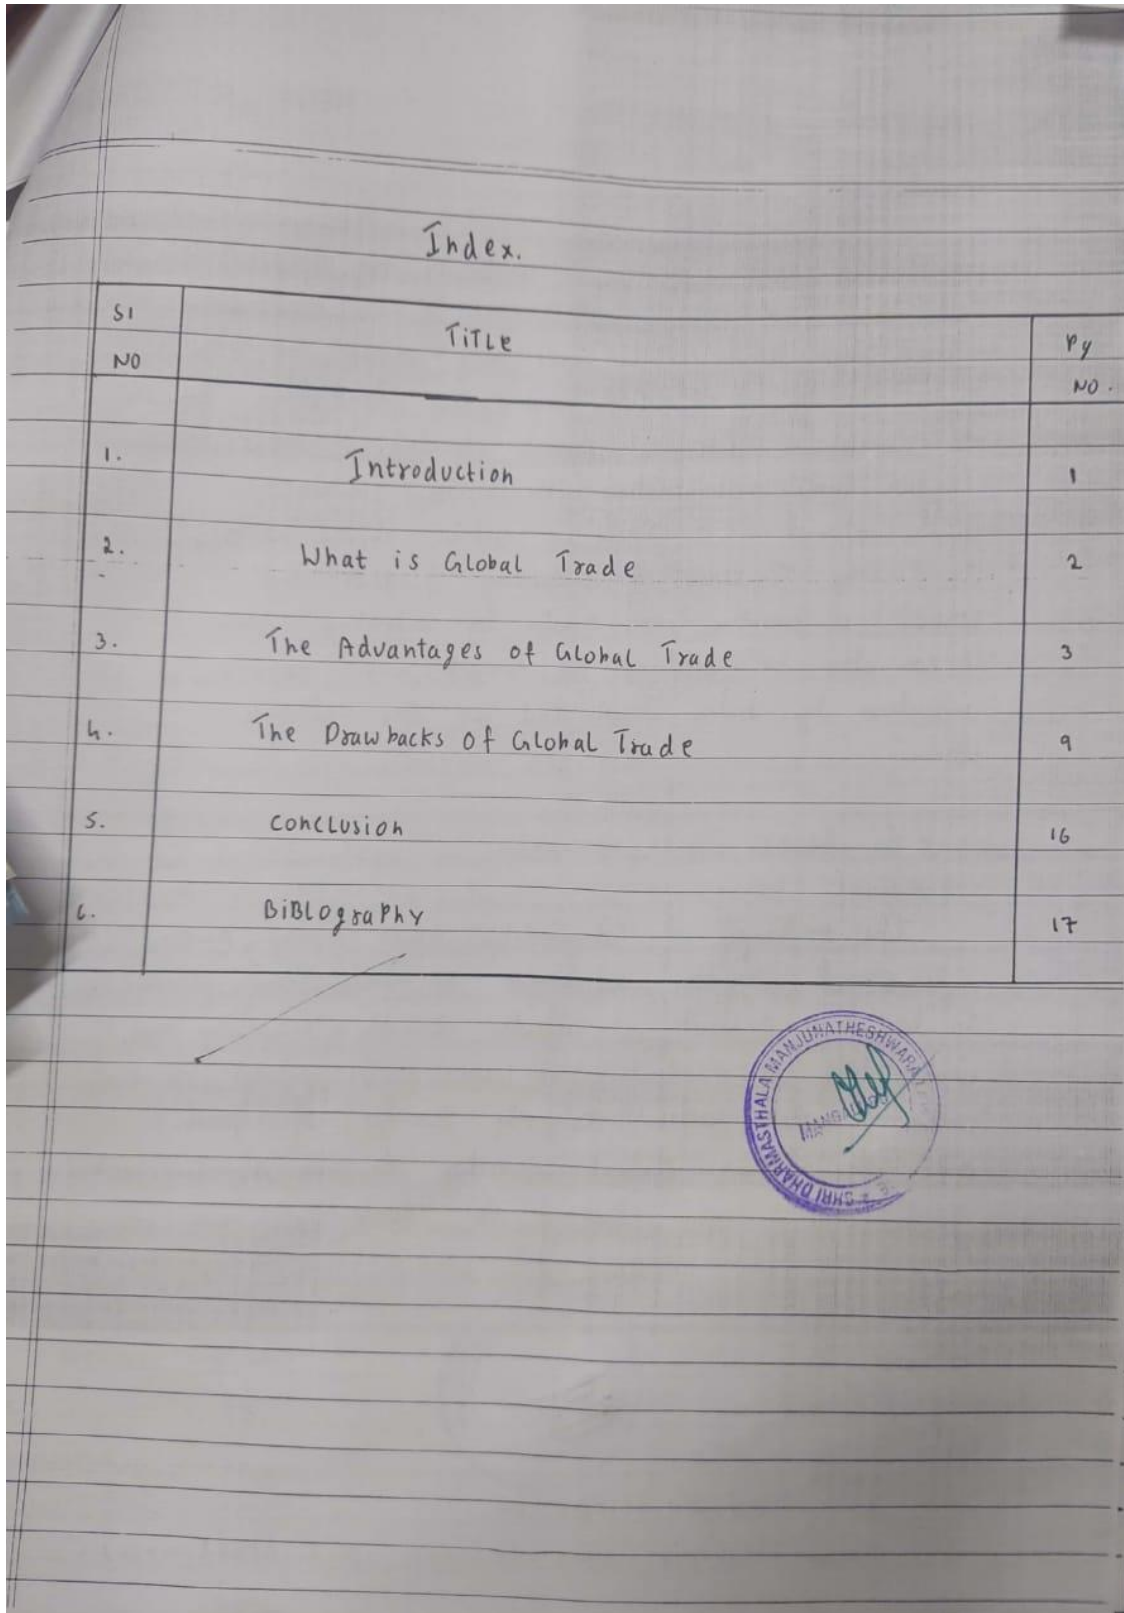 Index.
Sl TiTLe Pg
NO NO.
1. Introduction 1
2. What is Global Trade 2
3. The Advantages of Global Trade 3
4. The Drawbacks of Global Trade 9
5. Conclusion 16
6. BiBLography 17
SHRI DHARMASTHALA MANJUNATHESHWARA